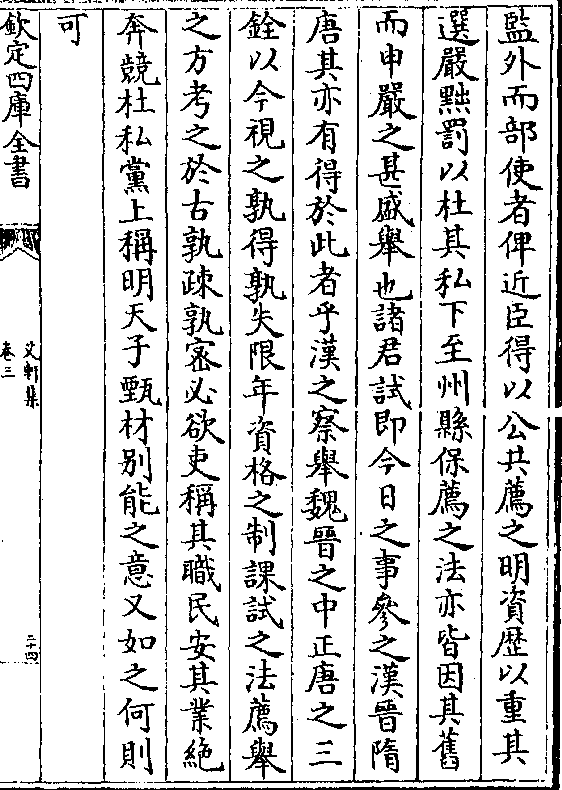 監外而部使者俾近臣得以公共薦之明資歴以重其
選嚴黜罰以杜其私下至州縣保薦之法亦皆因其舊
而申嚴之甚盛舉也諸君試即今日之事參之漢晉隋
唐其亦有得於此者乎漢之察舉魏晉之中正唐之三
銓以今視之孰得孰失限年資格之制課試之法薦舉
之方考之於古孰疎孰宻必欲吏稱其職民安其業絶
奔競杜私黨上稱明天子甄材别能之意又如之何則
可
欽定四庫全書
艾軒集
卷三
二十四